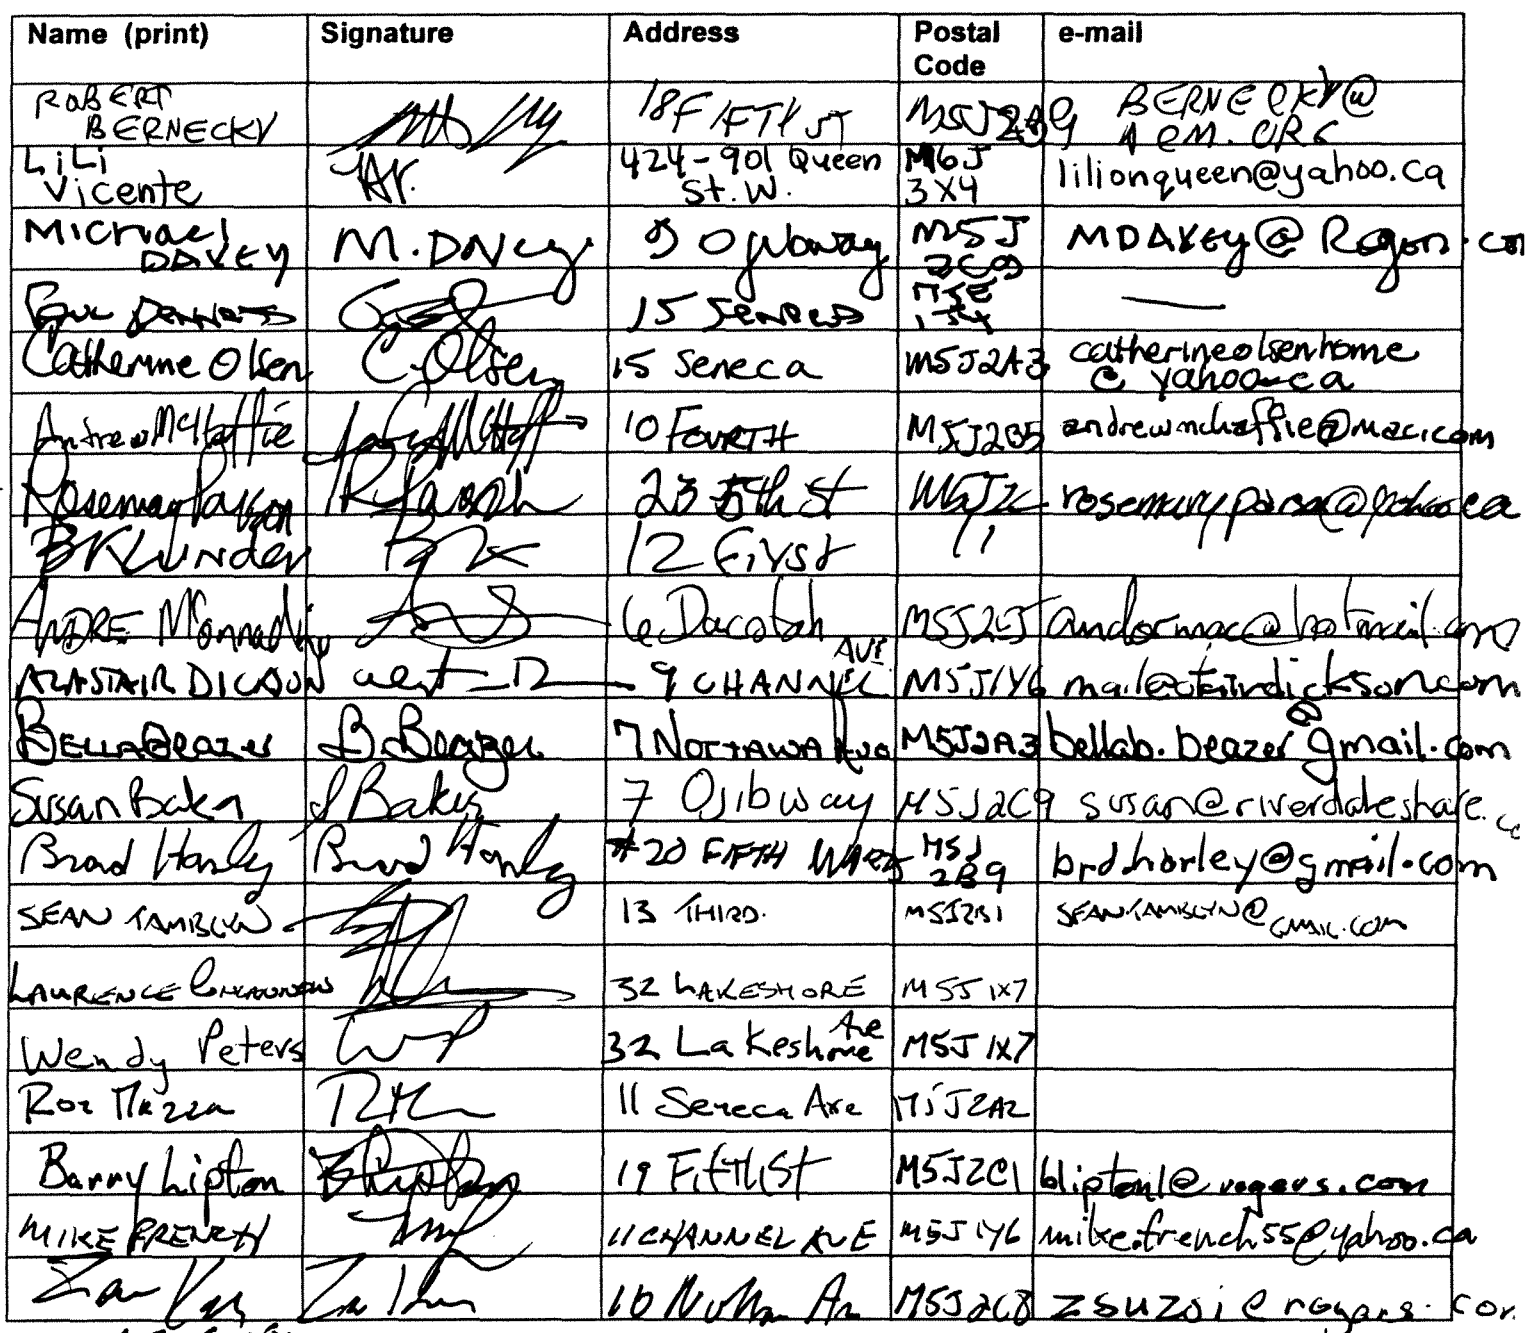 Name (print) Signature Address Postal Code e-mail
ROBERT BERNECKY 18 FIFTH ST M5J2B9 BERNECKY@ ACM.ORG
LiLi Vicente 424-901 Queen St. W. M6J 3X4 lilionqueen@yahoo.ca
Michael DAVEY M. Davey 5 Ojibway M5J 2C9 MDAVEY@Rogers.com
15 Seneca —
Catherine Olsen C. Olsen 15 Seneca M5J2A3 catherineolsenhome @ yahoo.ca
Andrew McHaffie 10 FOURTH M5J2B5 andrewmchaffie@mac.com
Rosemary 23 5th St rosemary
12 First "
ANDRE 6 Dacotah M5J2E5 andormac@hotmail.com
ALASTAIR DICKSON 9 CHANNEL AVE M5J1Y6
BELLA BEAZER B. Beazer 7 NOTTAWA M5J2A3 bellab.beazer@gmail.com
Susan Baker S Baker 7 Ojibway M5J2C9 susan@riverdaleshare.
Brad Harley Brad Harley #20 FIFTH WARDS M5J 2B9 brd.harley@gmail.com
SEAN TAMBLYN 13 THIRD. M5J2B1 SEAN.TAMBLYN@GMAIL.COM
LAURENCE 32 LAKESHORE M5J 1X7
Wendy Peters WP 32 Lakeshore Ave M5J 1X7
Roz Mazza 11 Seneca Ave M5J2A2
Barry Lipton B Lipton 19 Fifth St M5J2C1 blipton1@rogers.com
MIKE FRENCH 11 CHANNEL AVE M5J 1Y6 mike.french55@yahoo.ca
10 M5J2C8 zsuzsi@rogers.com